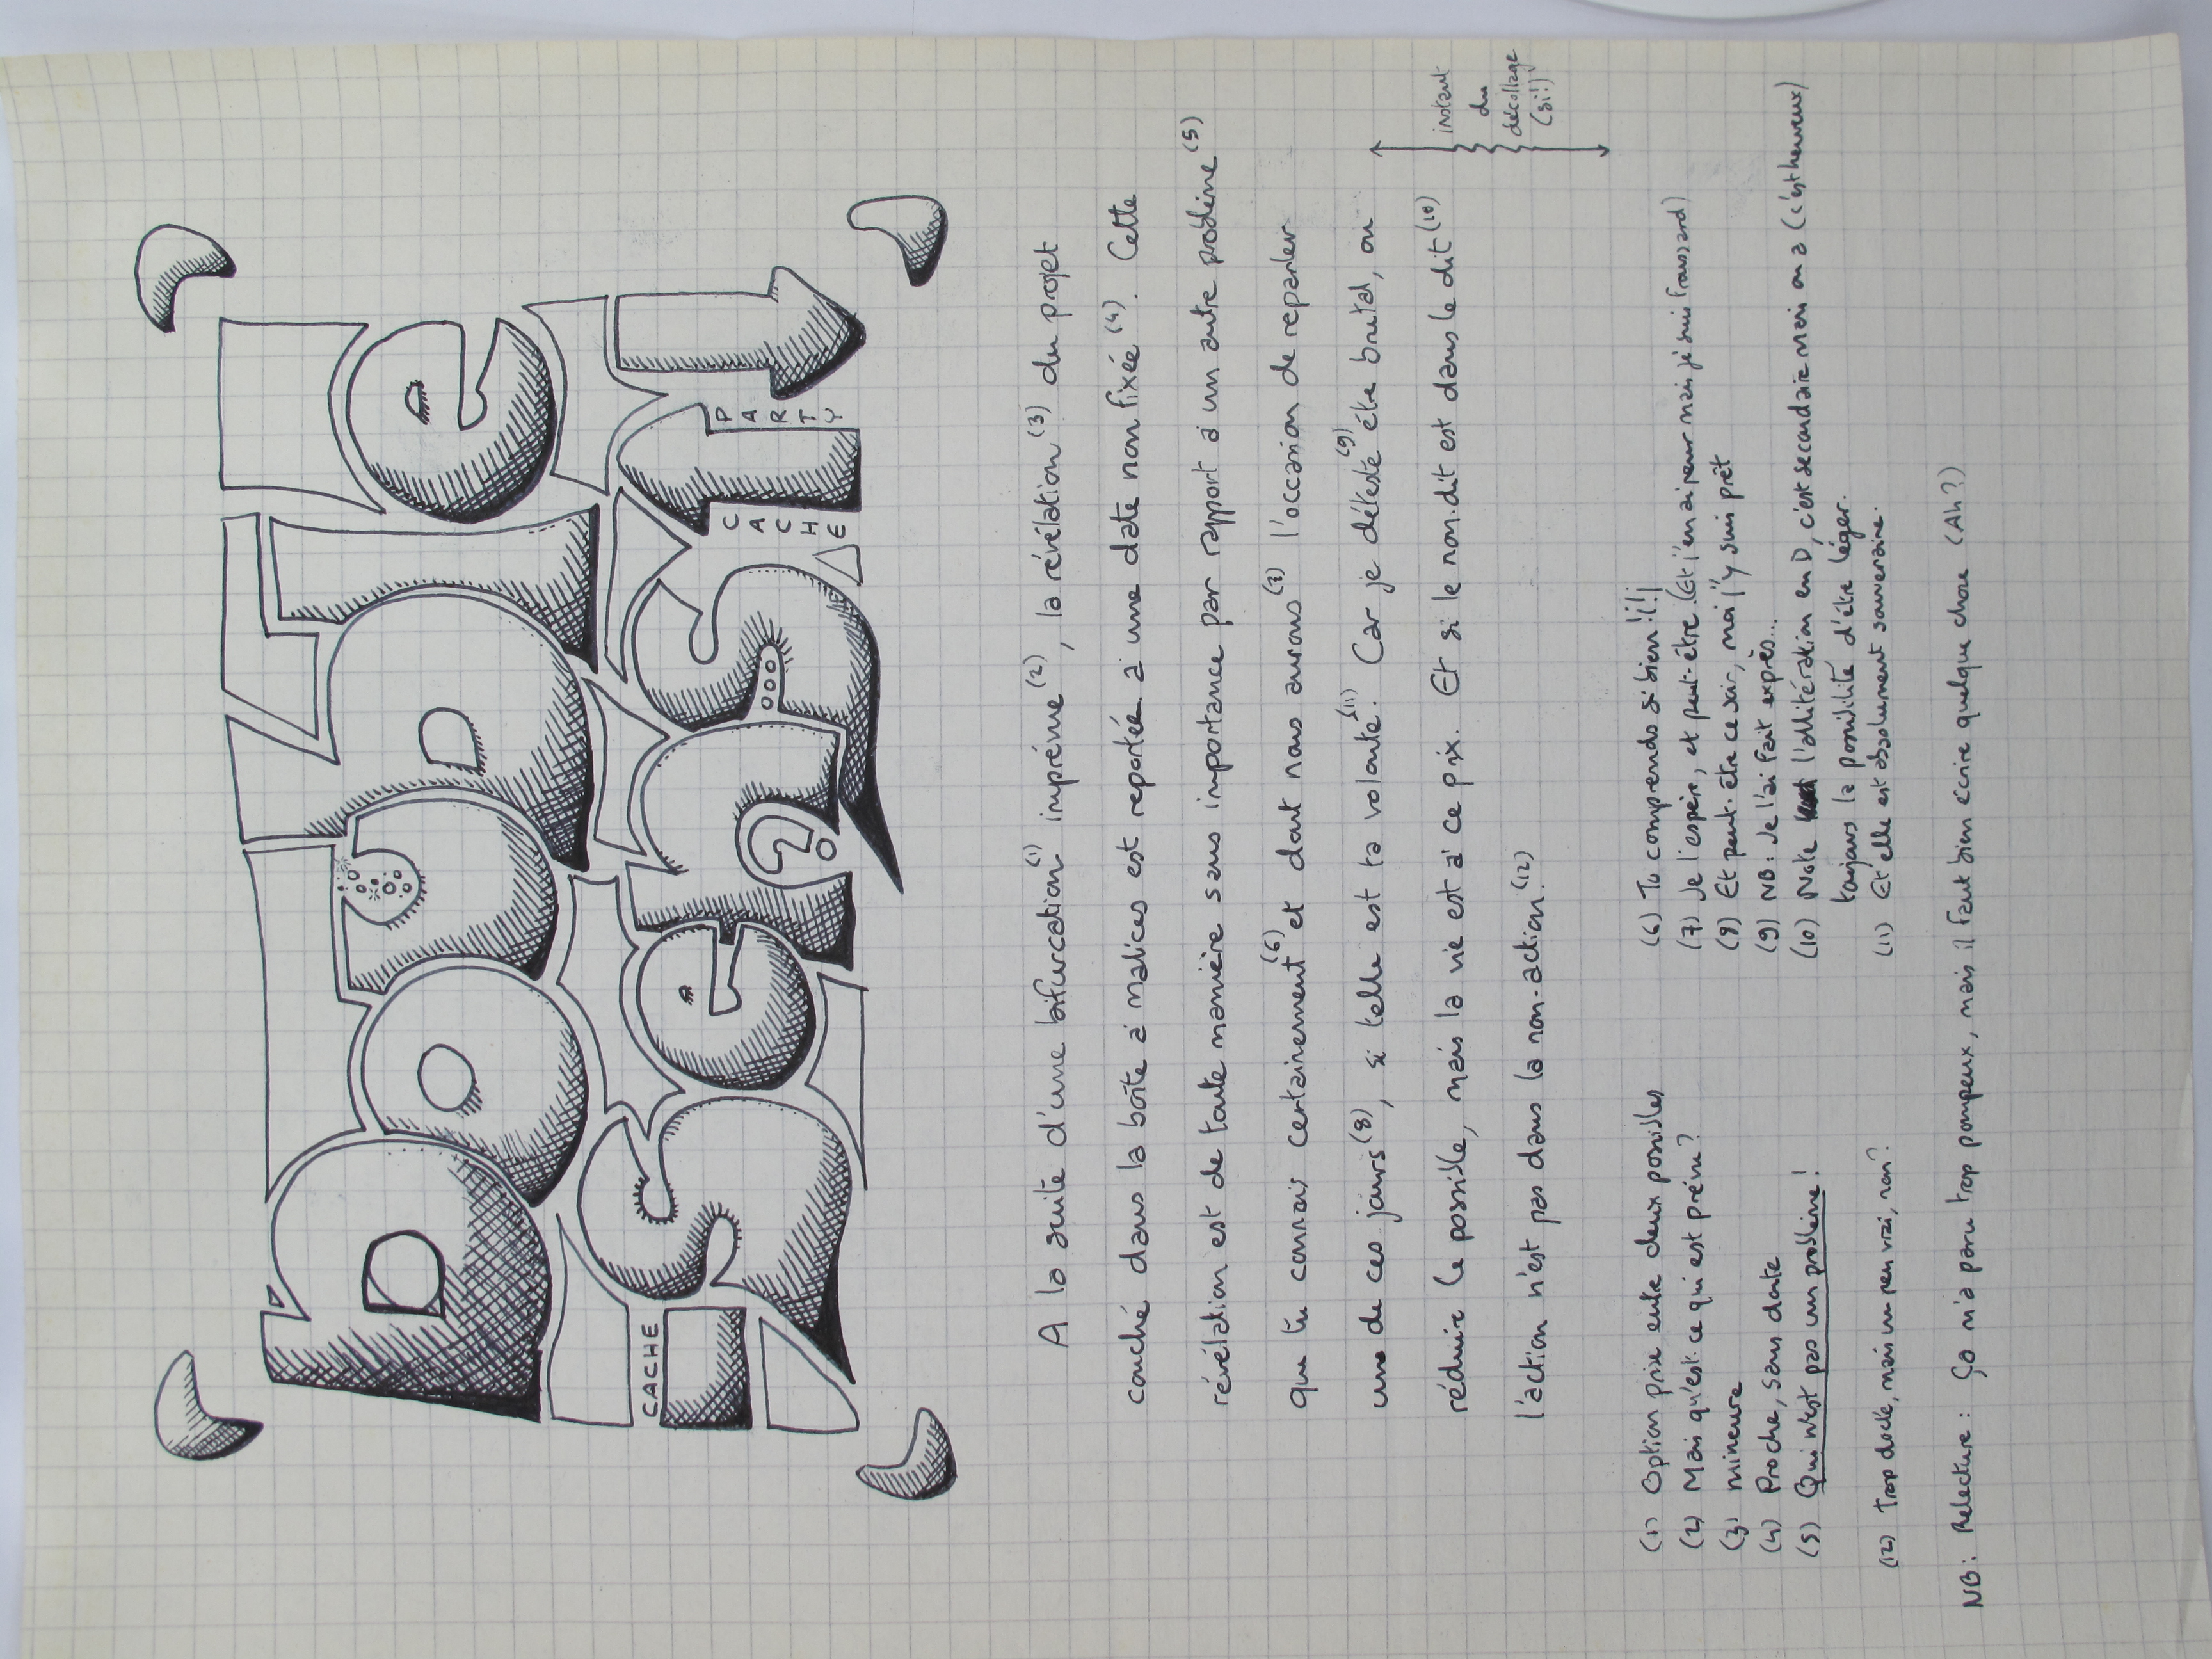 Double
CACHE
CACHE
PARTY
A la suite d'une bifurcation(1) imprévue(2), la révélation(3) du projet
couché dans la boîte à malices est reportée à une date non fixée(4). Cette
révélation est de toute manière sans importance par rapport à un autre problème(5)
que tu connais certainement(6) et dont nous aurons(7) l'occasion de reparler
un de ces jours(8), si telle est ta volonté(11). Car je déteste(9) être brutal, ou
réduire le possible, mais la vie est à ce pix. Et si le non-dit est dans le dit(10)
l'action n'est pas dans la non-action.(12)
instant
du
décollage
(si!)
(1) Option prise entre deux possibles
(2) Mais qu'est-ce qui est prévu?
(3) mineure
(4) Proche, sans doute
(5) Qui n'est pas un problème!
(6) Tu comprends si bien !¡!¡
(7) Je l'espère, et peut-être. (Et j'en ai peur mais je suis froussard)
(8) Et peut-être ce soir, moi j'y suis prêt
(9) NB: Je l'ai fait exprès...
(10) Note l'allitération en D, c'est secondaire mais on a (c'est heureux)
toujours la possibilité d'être léger.
(11) Et elle est absolument souveraine.
(12) trop docte, mais un peu vrai, non?
NB: Relecture: ça m'a paru trop pompeux, mais il faut bien écrire quelque chose (Ah?)